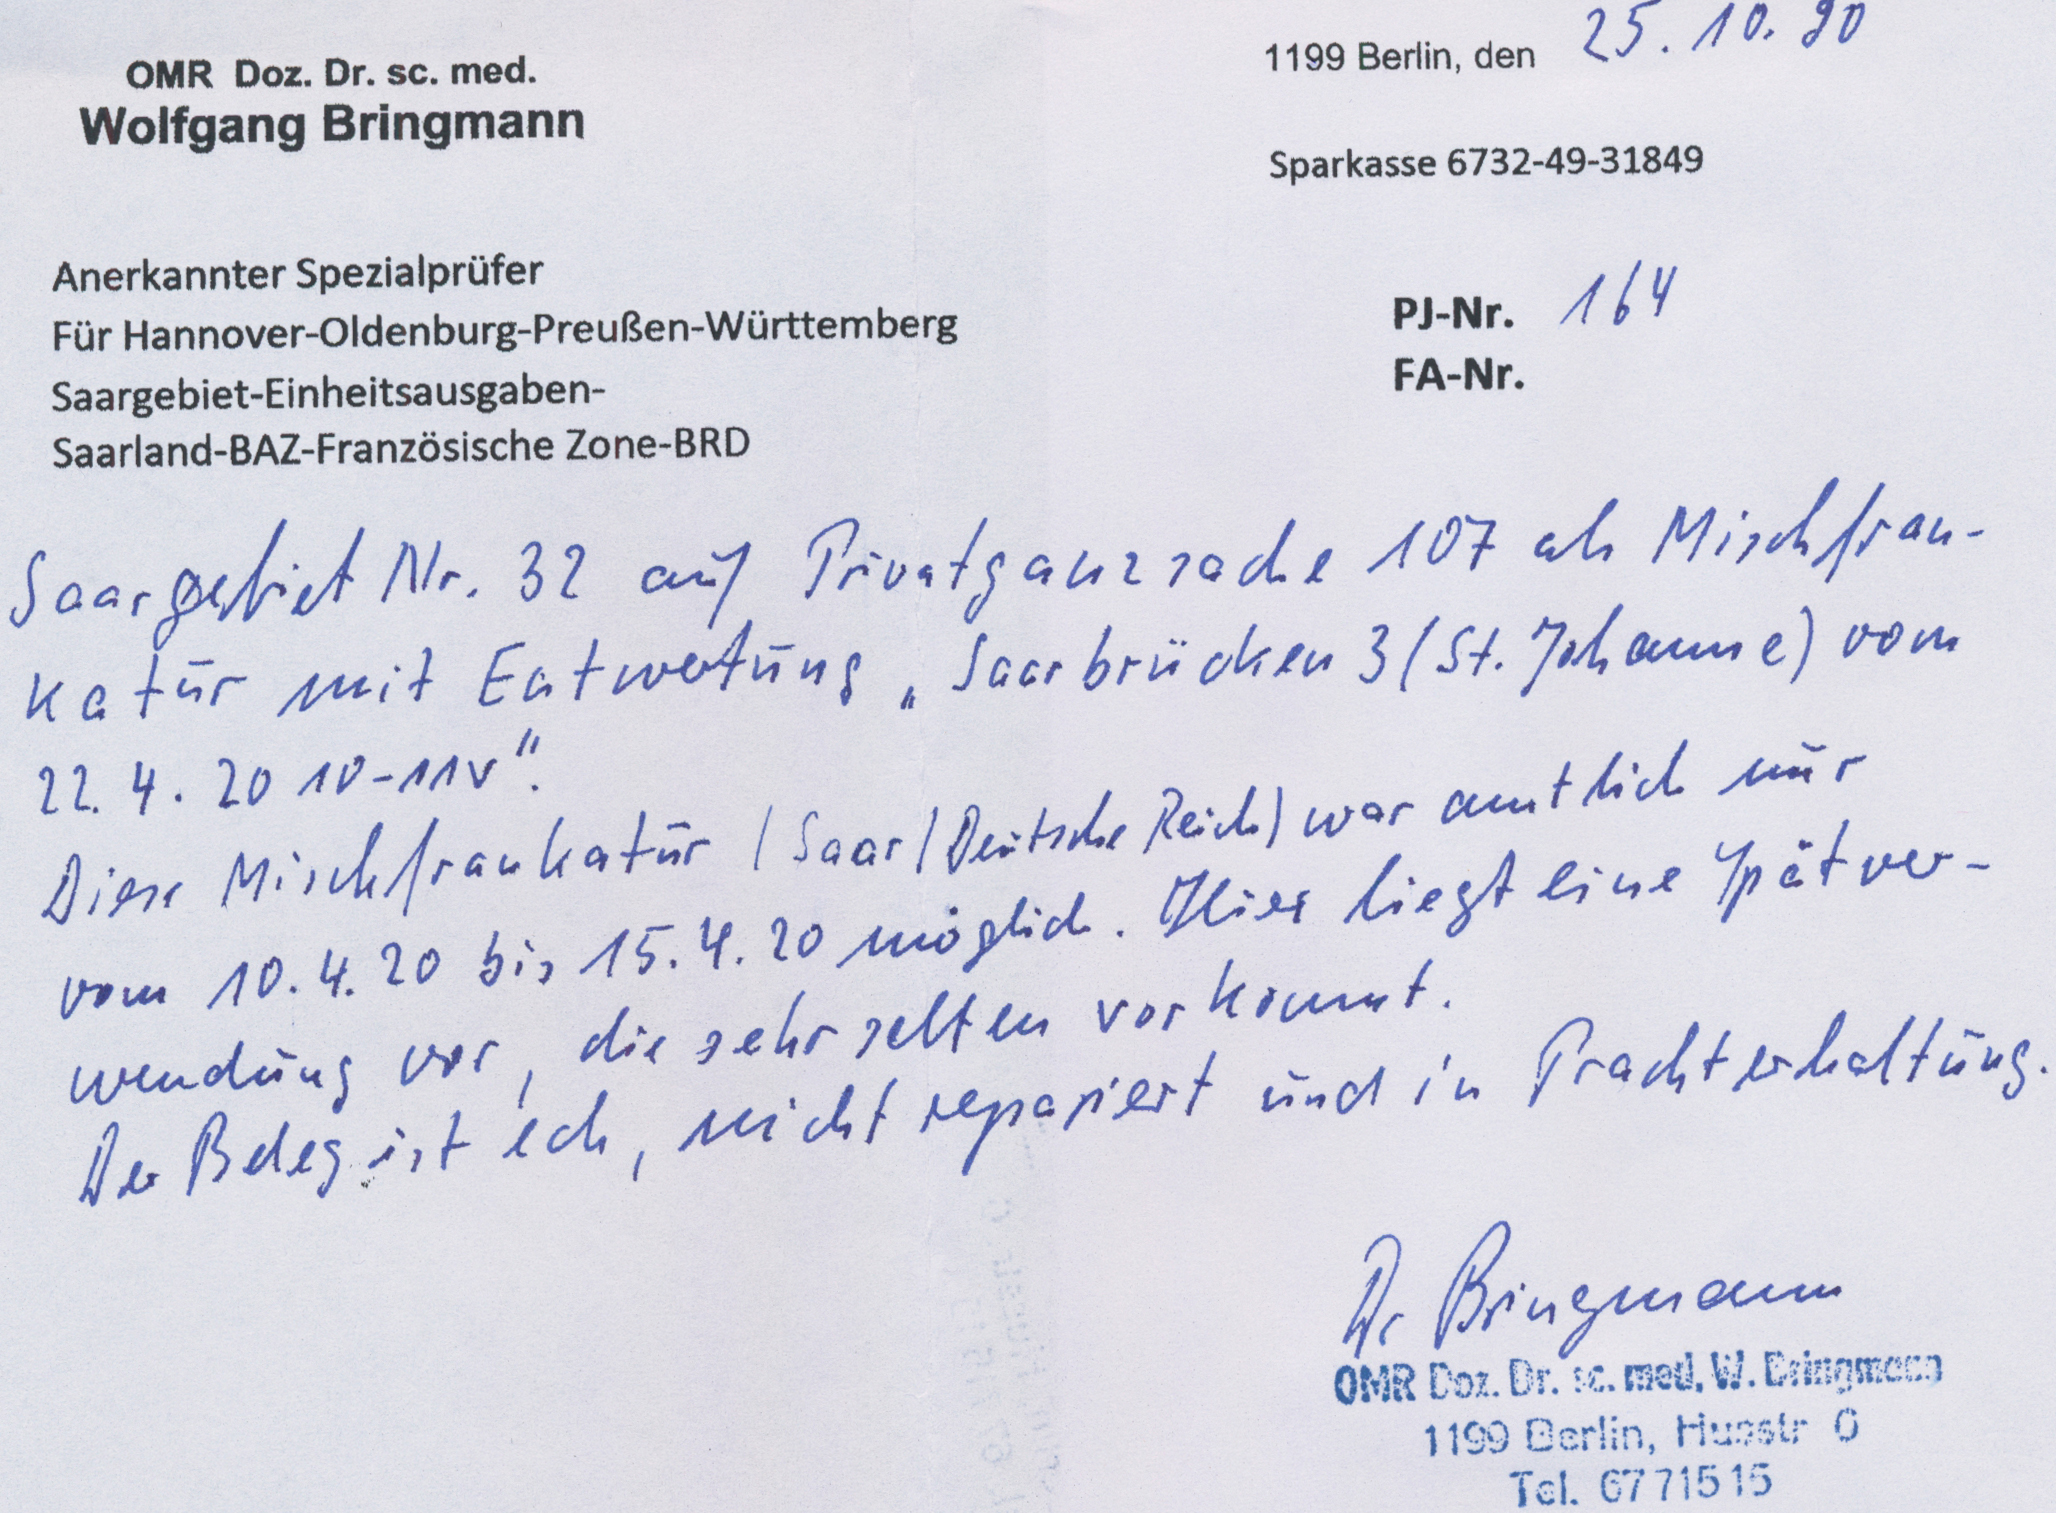 OMR Doz. Dr. sc. med.
Wolfgang Bringmann
1199 Berlin, den 25.10.90
Sparkasse 6732-49-31849
Anerkannter Spezialprüfer
Für Hannover-Oldenburg-Preußen-Württemberg
Saargebiet-Einheitsausgaben-
Saarland-BAZ-Französische Zone-BRD
PJ-Nr. 164
FA-Nr.
Saargebiet Nr. 32 auf Privatganzsache 107 als Mischfran-
katur mit Entwertung „Saarbrücken 3 (St. Johanne) vom
22.4.20 10-11v".
Diese Mischfrankatur (Saar/Deutsche Reich) war amtlich nur
vom 10.4.20 bis 15.4.20 möglich. Hier liegt eine Spätver-
wendung vor, die sehr selten vorkommt.
Der Beleg ist ech, nicht repariert und in Prachterhaltung.
Dr Bringmann
OMR Doz. Dr. sc. med. W. Bringmann
1199 Berlin, Husstr
Tel. 67 715 15